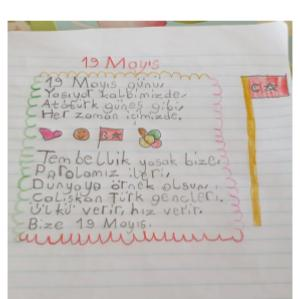 19 Mayıs
19 Mayıs günü,
Yaşıyor kalbimizde,
Atatürk güneş gibi,
Her zaman içimizde.
Tembellik yasak bize,
Parolamız ileri,
Dünyaya örnek olsun,
Çalışkan Türk gençleri.
Ülkü verir, hız verir.
Bize 19 Mayıs.